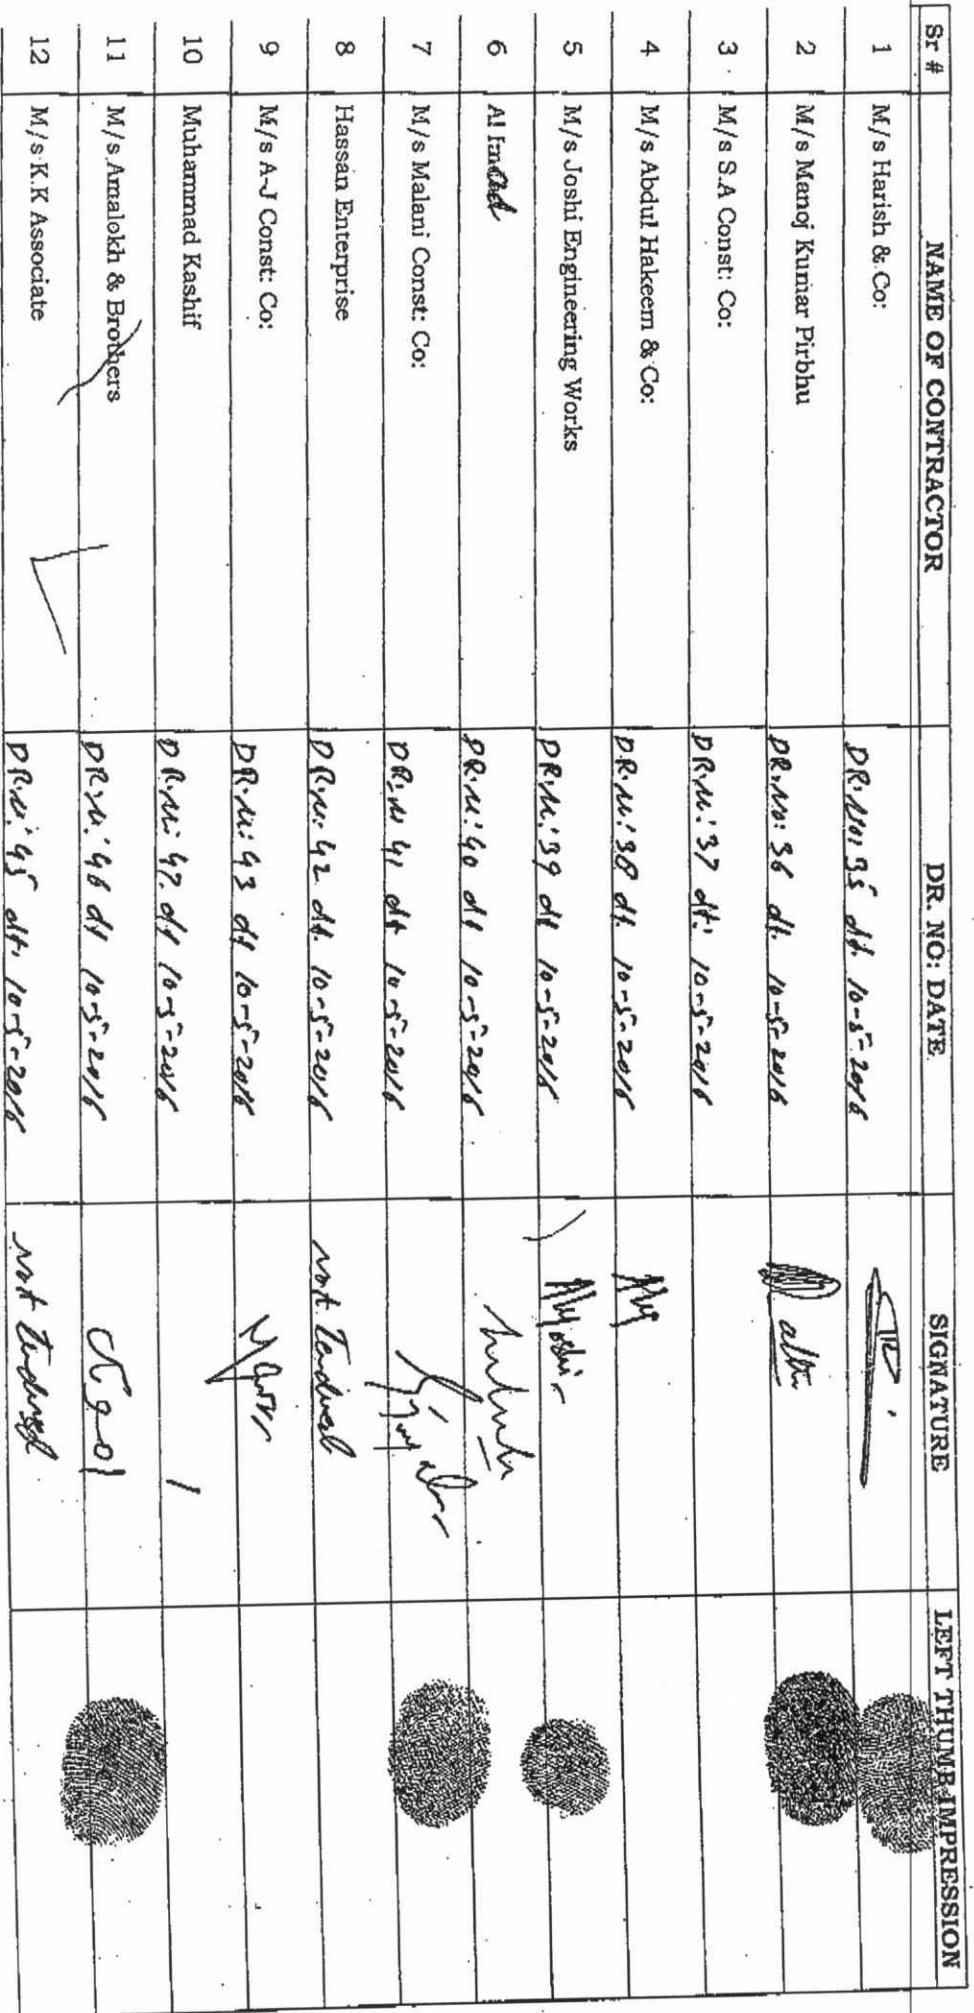 Sr # NAME OF CONTRACTOR DR. NO: DATE SIGNATURE LEFT THUMB IMPRESSION
1 M/s Harish & Co: DR. No: 35 dt. 10-5-2016
2 M/s Manoj Kumar Pirbhu DR. No: 36 dt. 10-5-2016
3 M/s S.A Const: Co: DR. N: 37 dt: 10-5-2016
4 M/s Abdul Hakeem & Co: DR. N: 38 dt. 10-5-2016
5 M/s Joshi Engineering Works DR. N: 39 dt 10-5-2016
6 Al Imdad DR. N: 40 dt 10-5-2016
7 M/s Malani Const: Co: DR. N: 41 dt 10-5-2016
8 Hassan Enterprise DR. N: 42 dt. 10-5-2016 not Tendered
9 M/s A-J Const: Co: DR. N: 43 dt 10-5-2016
10 Muhammad Kashif DR. N: 47. dt 10-5-2016
11 M/s Amalokh & Brothers DR. N: 46 dt 10-5-2016
12 M/s K.K Associate DR. N: 45 dt. 10-5-2016 not Tendered